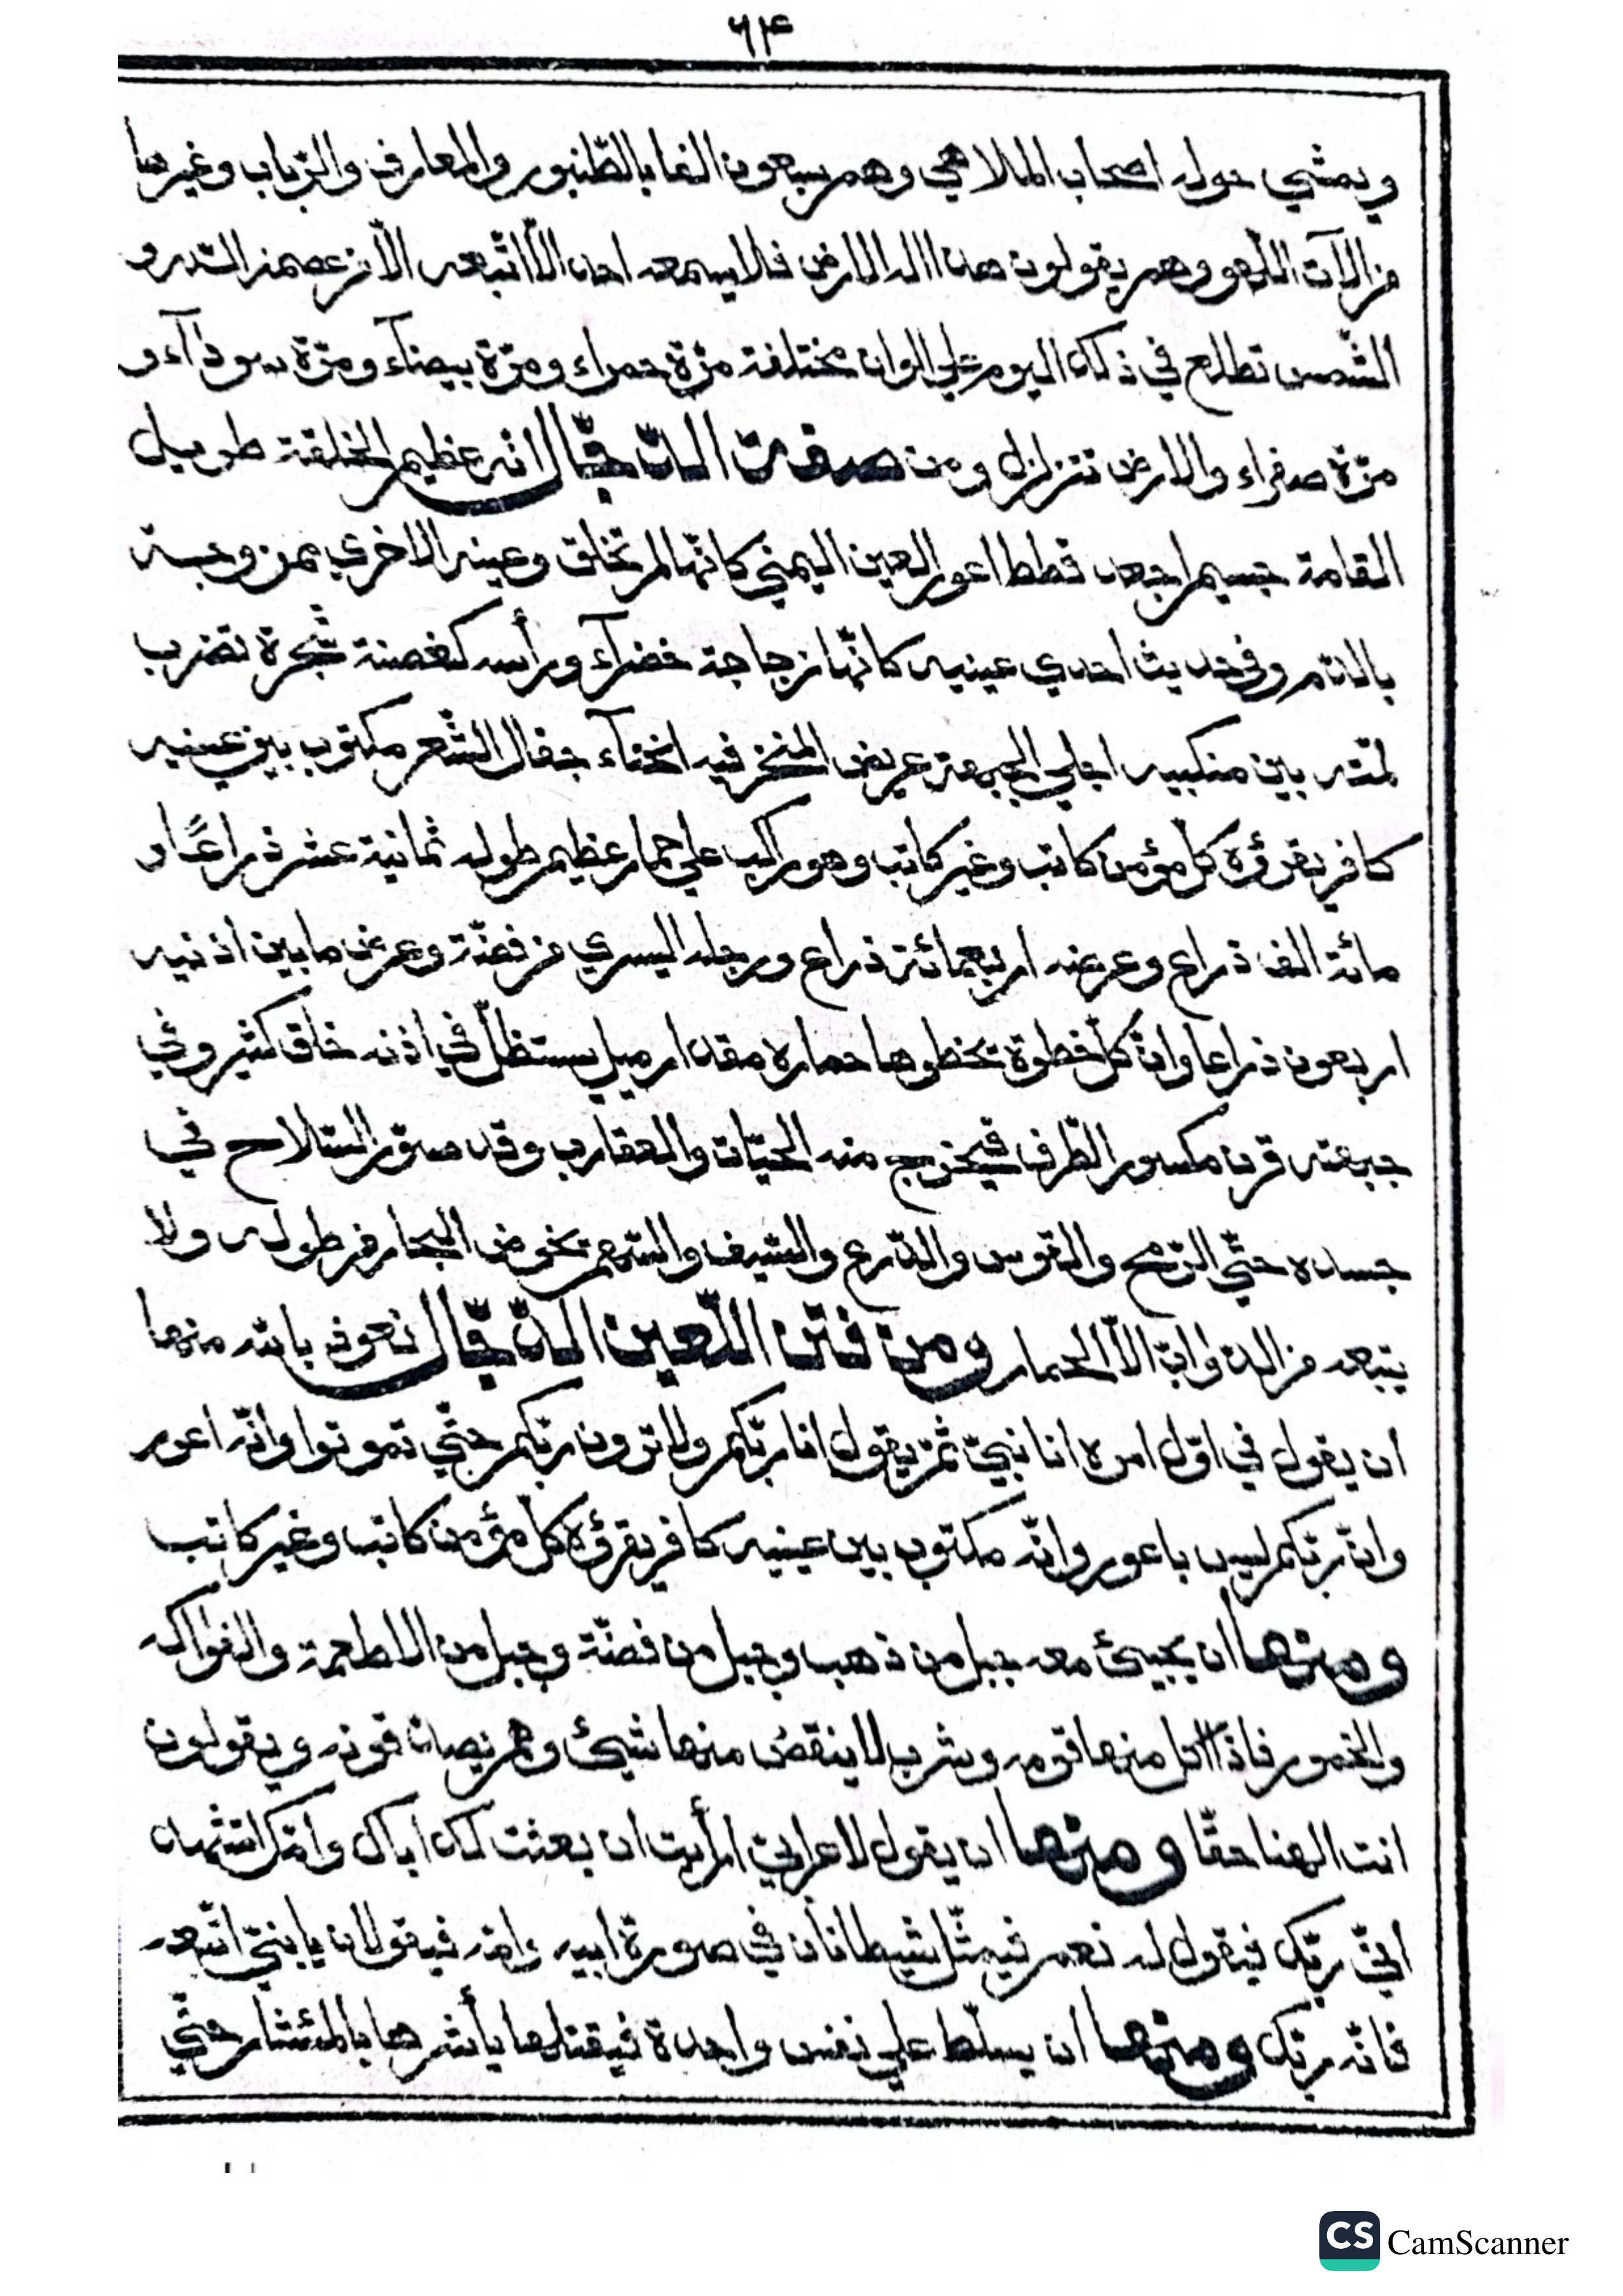 ٦١٤
ويمشي حوله اصحاب الملاهي وهم سبعون الفا بالطّنبور والمعازف والرّباب وغيرها
من الآت اللّهو وهم يقولون هذا اله الارض فلا يسمعه احد الّا اتّبعه الّا من عصمه اللّه و
الشّمس تطلع في ذلك اليوم علي الوان مختلفة مرّة حمراء ومرّة بيضآء ومرّة سودآء و
مرّة صفراء والارض تتزلزل ومن صفة الدّجّال انّه عظيم الخلقة طويل
القامة جسيم اجعد قطط اعور العين اليمني كانّها لم تخلق وعينه الاخري ممزوجة
بالدّم وفي حديث احدي عينيه كانّها زجاجة خضرآء ورأسه كغصنة شجرة تضرب
لمّته بين منكبيه اجلي الجبهة عريض المنخر فيه انحنآء جفال الشّعر مكتوب بين عينيه
كافر يقرؤه كلّ مؤمن كاتب وغير كاتب وهو راكب علي حمار عظيم طوله ثمانية عشر ذراعًا و
مائة الف ذراع وعرضه اربعمائة ذراع ورجله اليسري من فضّة وعرض ما بين اذنيه
اربعون ذراعا وانّ كلّ خطوة تخطوها حماره مقدار ميل يستظلّ في اذنه خلق كثير وفي
جبهته قرن مكسور الطّرف فيخرج منه الحيّات والعقارب وقد صوّر السّلاح في
جسده حتّي الرّمح والقوس والدّرع والسّيف والسّهم تخوض البحار من طوله ولا
يتبعه من الدوابّ الّا الحمار ومن فتن اللّعين الدّجّال نعوذ بالله منها
ان يقول في اوّل امره انا نبيّ ثمّ يقول انا ربّكم ولا ترون ربّكم حتّي تموتوا وانّه اعور
وانّ ربّكم ليس باعور وانّه مكتوب بين عينيه كافر يقرؤه كلّ مؤمن كاتب وغير كاتب
ومنها ان يجيئ معه جبل من ذهب وجبل من فضّة وجبل من الاطعمة والفواكه
والخمور فاذا اكل منها قومه وشرب لا ينقص منها شيئ وهم يصدّقونه ويقولون
انت الهنا حقّا ومنها ان يقول لاعرابيّ ارأيت ان بعثت لك اباك وامّك اتشهد
انّي ربّك فيقول له نعم فيمثّل شيطانان في صورة ابيه وامّه فيقولان يا بنيّ اتّبعه
فانّه ربّك ومنها ان يسلّط علي نفس واحدة فيقتلها يأشرها بالمئشار حتّي
CS CamScanner